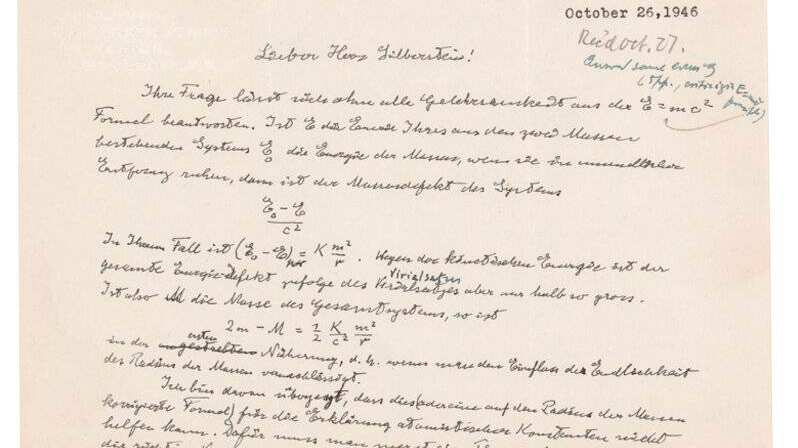 October 26, 1946
Rec'd oct. 27.
Answ/ same even'g
(5 pp.,
Lieber Herr Silberstein!
Ihre Frage lässt sich ohne alle Gelehrsamkeit aus der E = mc²
Formel beantworten. Ist E die Energie Ihres aus den zwei Massen
bestehenden Systems E₀ die Energie der Massen, wenn sie in unendlicher
Entfernung ruhen, dann ist der Massendefekt des Systems
E₀ - E
c²
In Ihrem Fall ist (E₀ - E) = K m²/r. Wegen der kinetischen Energie ist der
Virialsatzes
gesamte Energiedefekt zufolge des aber nur halb so gross.
Ist also M die Masse des Gesamtsystems, so ist
2m - M = 1/2 K/c² m²/r
ersten
in der Näherung, d. h. wenn man den Einfluss der Endlichkeit
des Radius der Massen vernachlässigt.
Ich bin davon überzeugt, dass dies (oder eine auf den Radius der Massen
korrigierte Formel) für die Erklärung atomistischer Konstanten nicht
helfen kann. Dafür muss man